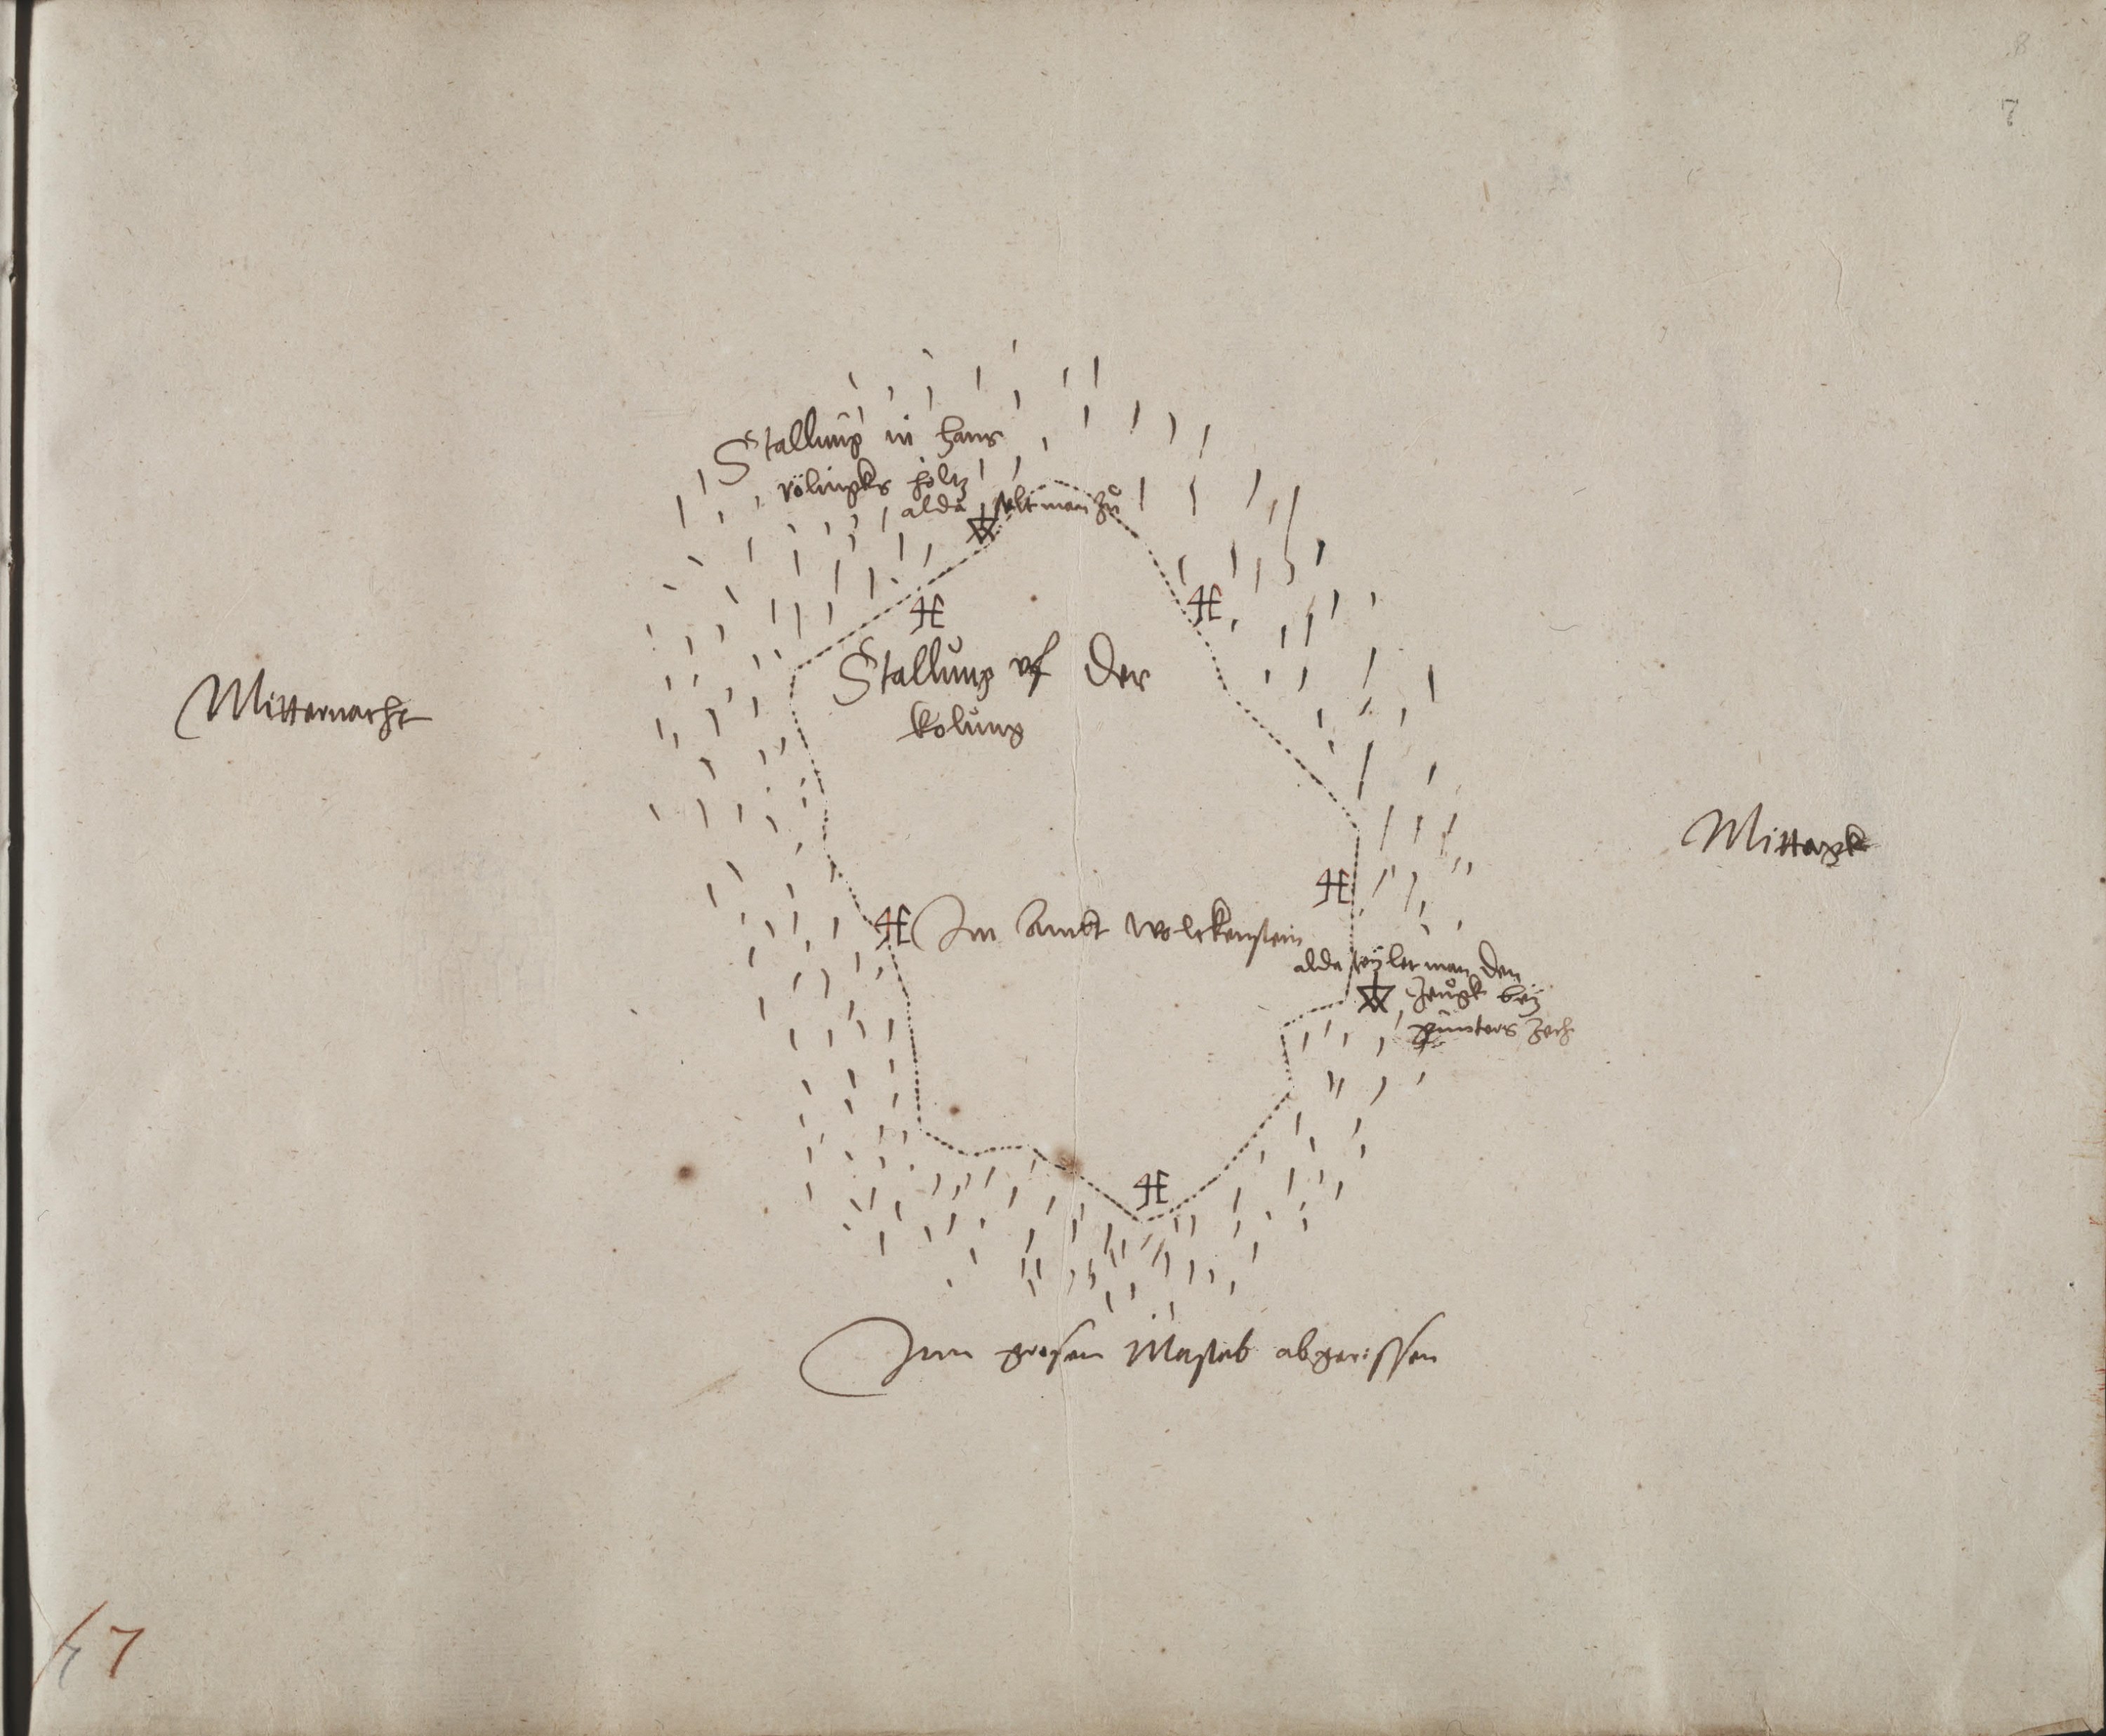 8
7
Stallung in hans
rölingks holtz
alda felt man zu
Stallung vf der
kolung
Mitternacht
Mittagk
Im Ambt Wolckenstein
alda man den
Zeugk bey
günters Zech
Im grosen Mastab abgerissen
7